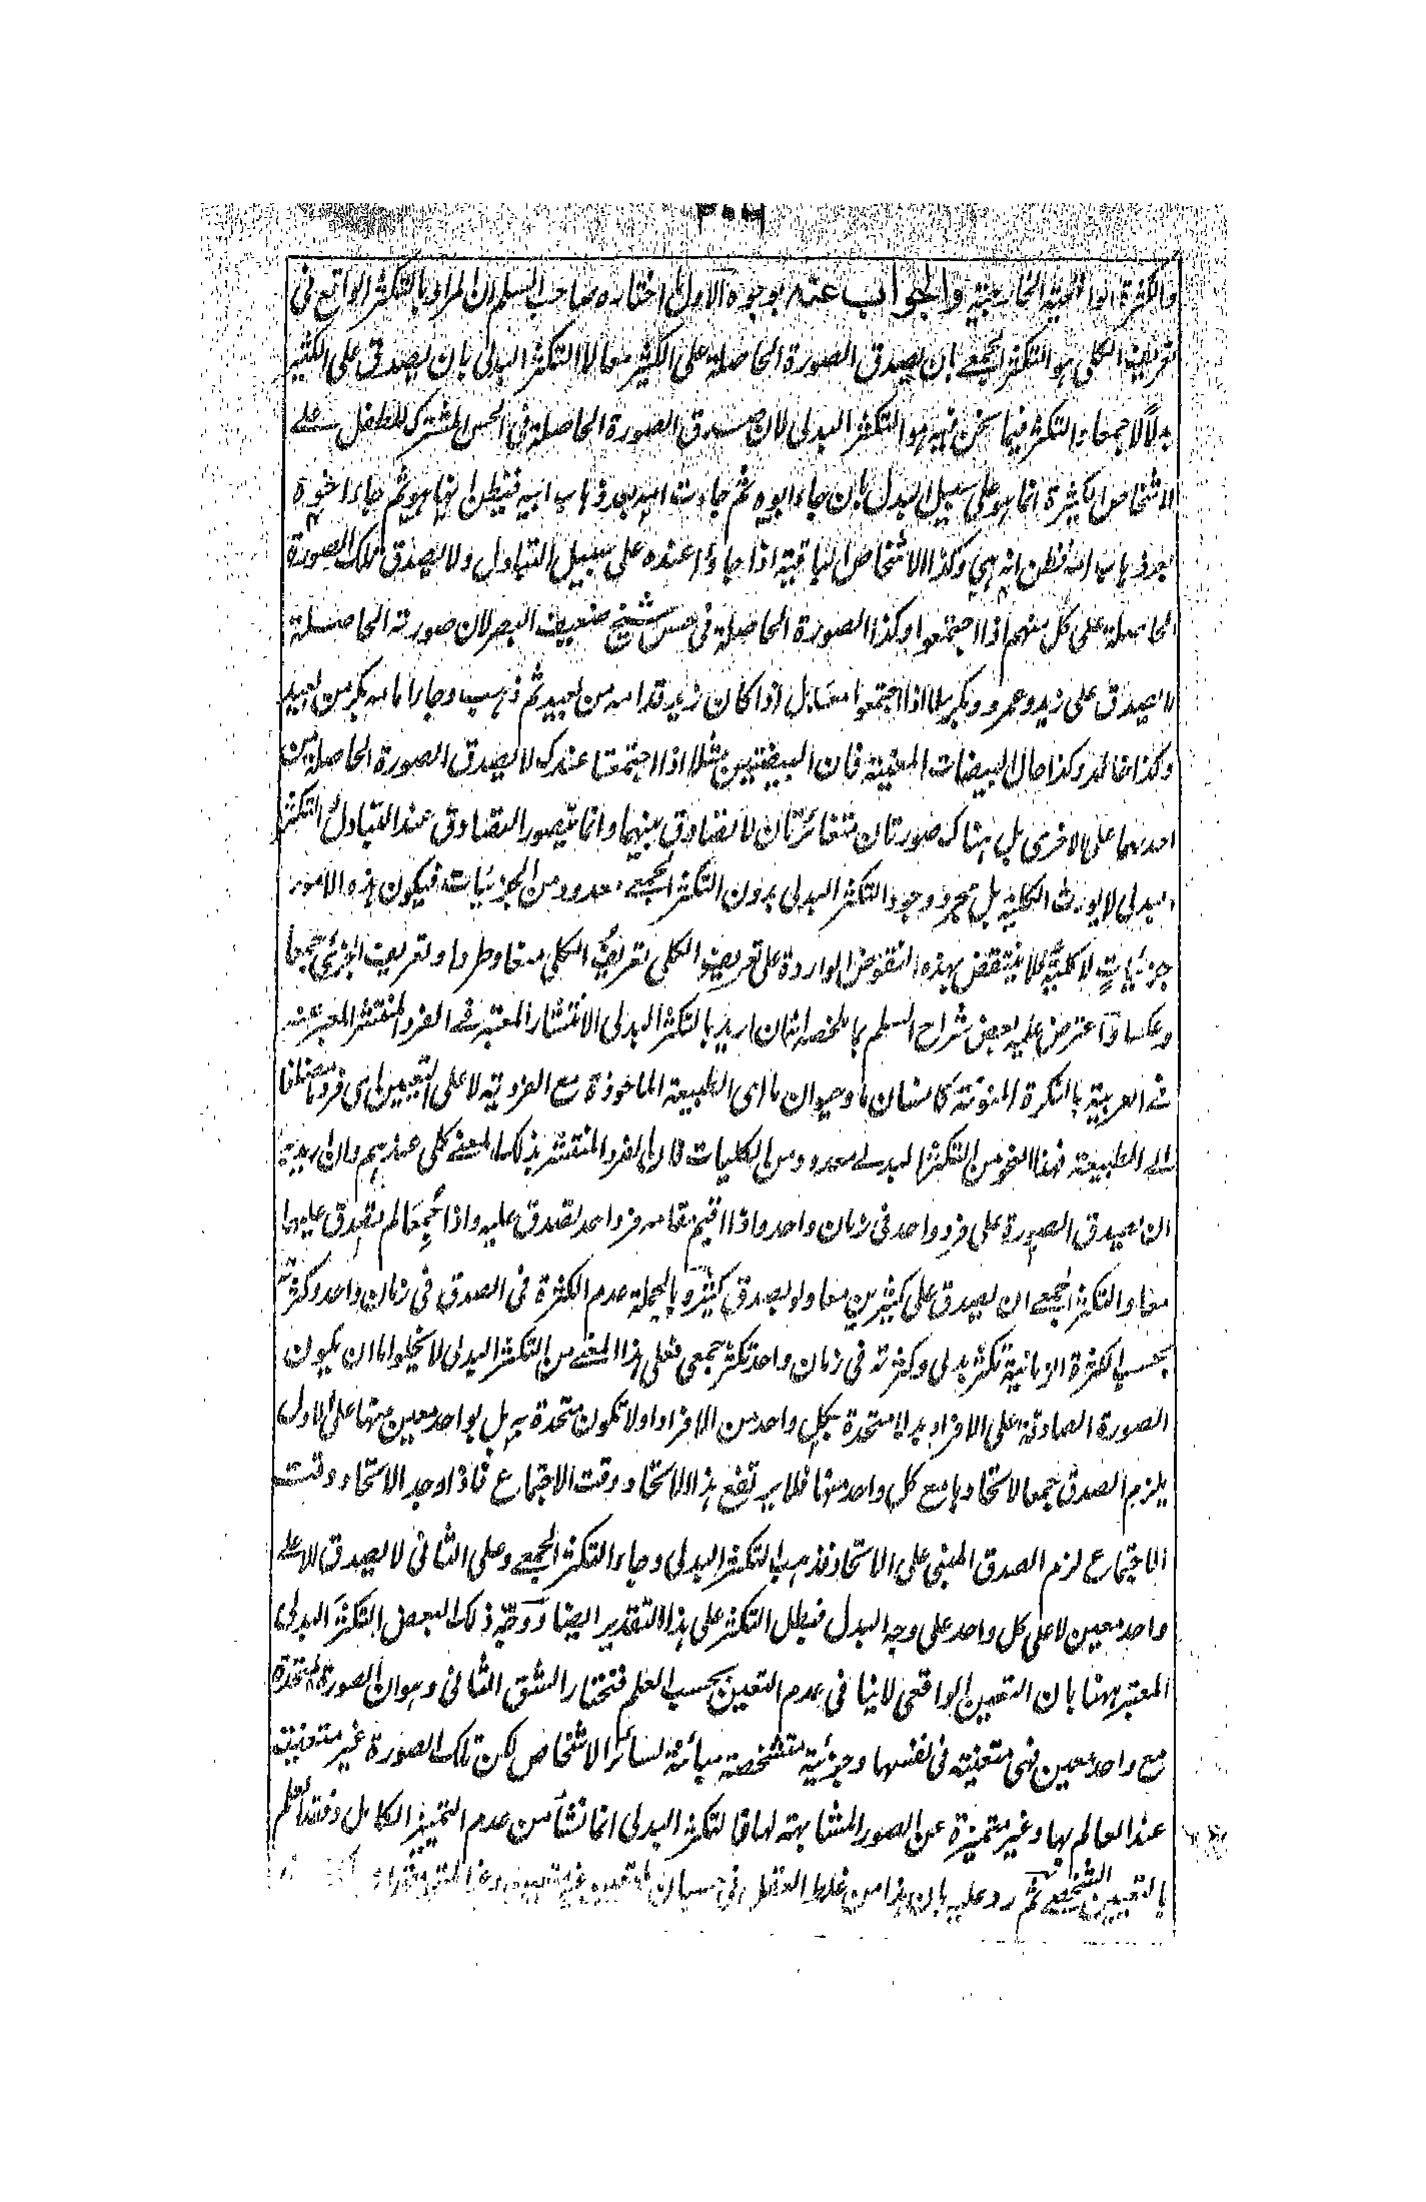 والكثرة الواقعية الخارجية والجواب عنه بوجوه الاول اختاره صاحب السلم ان المراد بالتكثر الواقع فى
تعريف الكلى هو التكثر الجمعے بان يصدق الصورة الحاصلة على الكثير معا لا التكثر البدلى بان يصدق على الكثير
بدلاً لا جمعا والتكثر فيما نحن فيه هو التكثر البدلى لان صدق الصورة الحاصلة فى الحس المشترك للطفل علے
الاشخاص الكثيرة انما هو على سبيل البدل بان جاء ابوه ثم جاءت امه بعد ذهاب ابيه فيظن انها هو ثم جاء اخوه
بعد ذهاب امه فظن انه هى وكذا الاشخاص الباقية اذا جاؤا عنده على سبيل التبادل ولا يصدق تلك الصورة
الحاصلة على كل منهم اذا اجتمعوا وكذا الصورة الحاصلة فى حس شيخ ضعيف البصر لان صورته الحاصلة
لا يصدق على زيد وعمرو وبكر مثلا اذا اجتمعوا معا بل اذا كان زيد قدامه من بعيد ثم ذهب وجاء امامه بكر من بعيد
وكذا خالد وكذا حال البيضات المعينة فان البيضتين مثلا اذا اجتمعتا عندك لا يصدق الصورة الحاصلة من
احدهما على الاخرى بل هناك صورتان متغائرتان لا تصادق بينهما وانما يتصور التصادق عند التبادل والتكثر
البدلى لا يورث الكلية بل مجرد وجود التكثر البدلى بدون التكثر الجمعے معدود من الجزئيات فيكون هذه الامور
جزئياتٍ لا كليةً فلا ينتقض بهذه النقوض الواردة على تعريف الكلى تعريف الكلى منعا وطردا وتعريف الجزئى جمعا
وعكسا واعترض عليه بعض شراح السلم بما ملخصه انه ان اريد بالتكثر البدلى الانتشار المعتبر فے الفرد المنتشر المعبر عنه
فے العربية بالنكرة المنونة كانسان ما وحيوان ما اى الطبيعة الماخوذة مع الفردية لا على التعيين اى فرد ما مضافا
الے الطبيعة فهذا النحو من التكثر البدلے معدود من الكليات فان الفرد المنتشر بذلك المعنے كلى عندهم وان اريد به
ان يصدق الصورة على فرد واحد فى زمان واحد واذا اقيم مقامه فرد احد تصدق عليه واذا جُمِعَا لم تصدق عليهما
معا والتكثر الجمعے ان يصدق على كثيرين معا ولو بصدق كثير وبالجملة عدم الكثرة فى الصدق فى زمان واحد وكثرته
بحسب الكثرة الزمانية تكثر بدلى وكثرته فى زمان واحد تكثر جمعى فعلى هذا المعنے من التكثر البدلى لا يخلوا اما ان يكون
الصورة الصادقة على الافراد بدلا متحدة بكل واحد من الافراد او لا تكون متحدة به بل بواحد معين منها على الاول
يلزم الصدق جمعا لاتحادها مع كل واحد منها فلا يرتفع هذا الاتحاد وقت الاجتماع فاذا وجد الاتحاد وقت
الاجتماع لزم الصدق المبنى على الاتحاد فذهب التكثر البدلى وجاء التكثر الجمعے وعلى الثانى لا يصدق الا علے
واحد معين لا على كل واحد على وجه البدل فبطل التكثر على هذا التقدير ايضا ووجّه ذلك البعض التكثر البدلى
المعتبر ههنا بان التعين الواقعى لا ينافى عدم التعين بحسب العلم فنختار الشق الثانى وهو ان الصورة المتحدة
مع واحد معين فهى متعينة فى نفسها وجزئية متشخصة مبائنة لسائر الاشخاص لكن تلك الصورة غير متعينة
عند العالم بها وغير متميزة عن الصور المشابهة لها فالتكثر البدلى انما نشأ من عدم التميز الكامل وفقد العلم
بالتعيين الشخصے ثم رد عليه بان هذا من غلط العقل فى حسبان